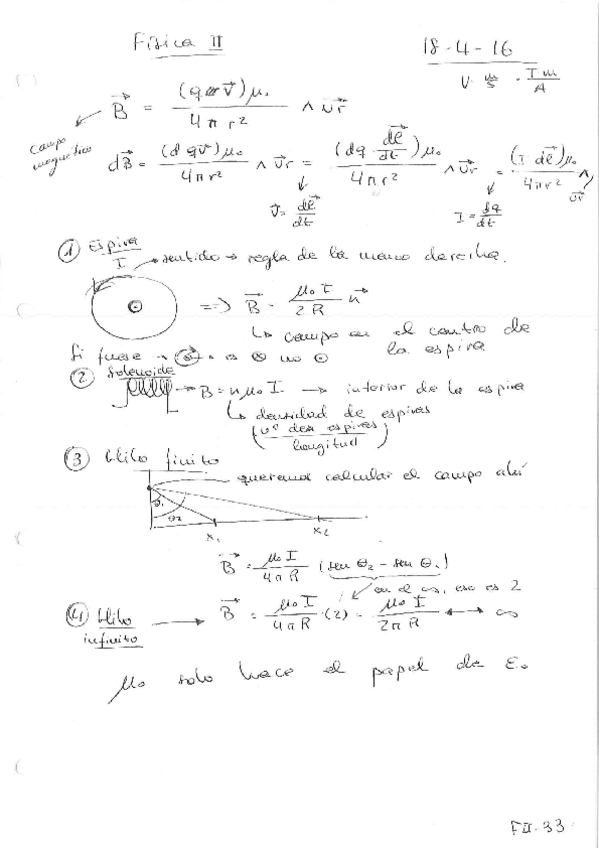 Física II
18-4-16
V · m/s · T·m/A
B⃗ = (q v⃗) μ₀ / 4πr² ∧ u⃗r
campo magnético
dB⃗ = (dq v⃗) μ₀ / 4πr² ∧ u⃗r = (dq dl⃗/dt) μ₀ / 4πr² ∧ u⃗r = (I dl⃗) μ₀ / 4πr² ∧ u⃗r
v⃗ = dl⃗/dt
I = dq/dt
① Espira
I → sentido → regla de la mano derecha.
⊙ ⇒ B⃗ = μ₀ I / 2R n⃗
↳ campo en el centro de la espira
Si fuese → es ⊗ no ⊙
② Solenoide
→ B = n μ₀ I → interior de la espira
↳ densidad de espiras
(nº de espiras / longitud)
③ Hilo finito
queremos calcular el campo ahí
θ₁
θ₂
x₁ x₂
B⃗ = μ₀ I / 4πR (sen θ₂ - sen θ₁)
en el ∞, eso es 2
④ Hilo infinito → B⃗ = μ₀ I / 4πR · (2) = μ₀ I / 2πR ↔ ∞
μ₀ solo hace el papel de ε₀
FII-33